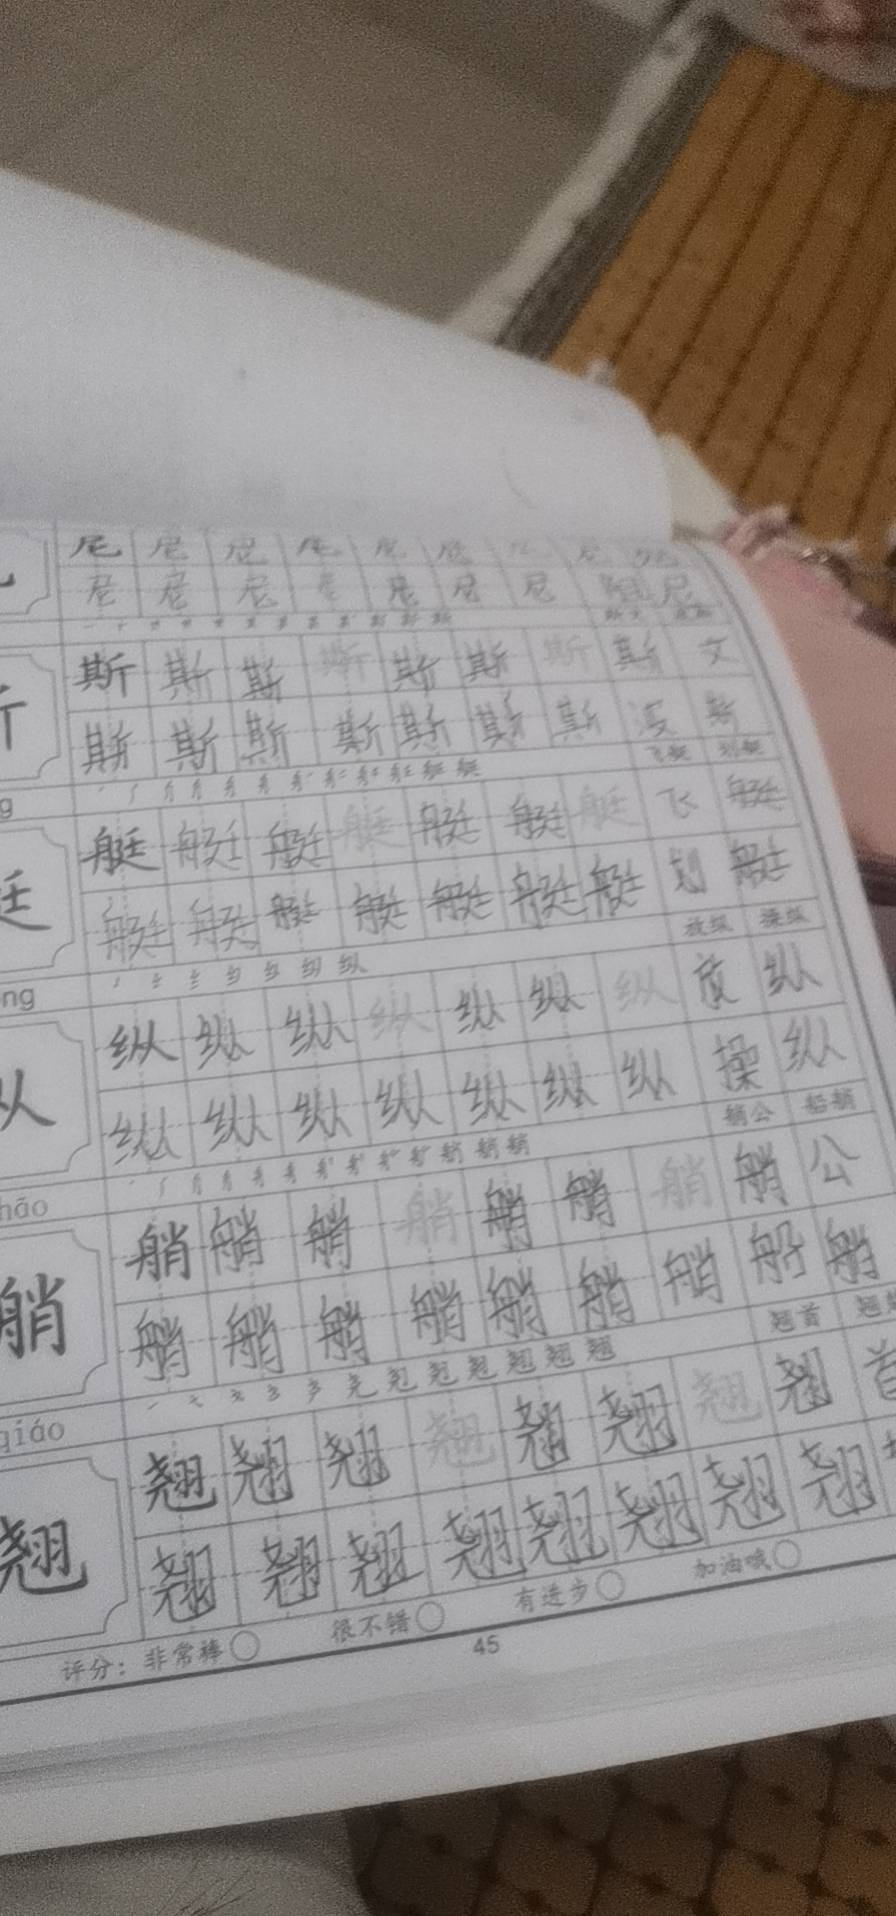 尼 尼 尼 尼 尼 尼
尼 尼 尼 尼 尼 尼 尼 尼
斯 斯 斯 斯 斯 斯 斯 斯 文
斯 斯 斯 斯 斯 斯 斯 斯
飞艇 划艇
艇 艇 艇 艇 艇 艇 艇 飞 艇
艇 艇 艇 艇 艇 艇 艇 划 艇
放纵 操纵
纵 纵 纵 纵 纵 纵 纵 放 纵
纵 纵 纵 纵 纵 纵 纵 操 纵
艄公 船艄
艄 艄 艄 艄 艄 艄 艄 艄 艄 公
艄 艄 艄 艄 艄 艄 艄 船 艄
翘首
qiáo
翘 翘 翘 翘 翘 翘 翘 翘 翘 首
翘 翘 翘 翘 翘 翘 翘 翘
评分：非常棒 很不错 有进步 加油哦
45